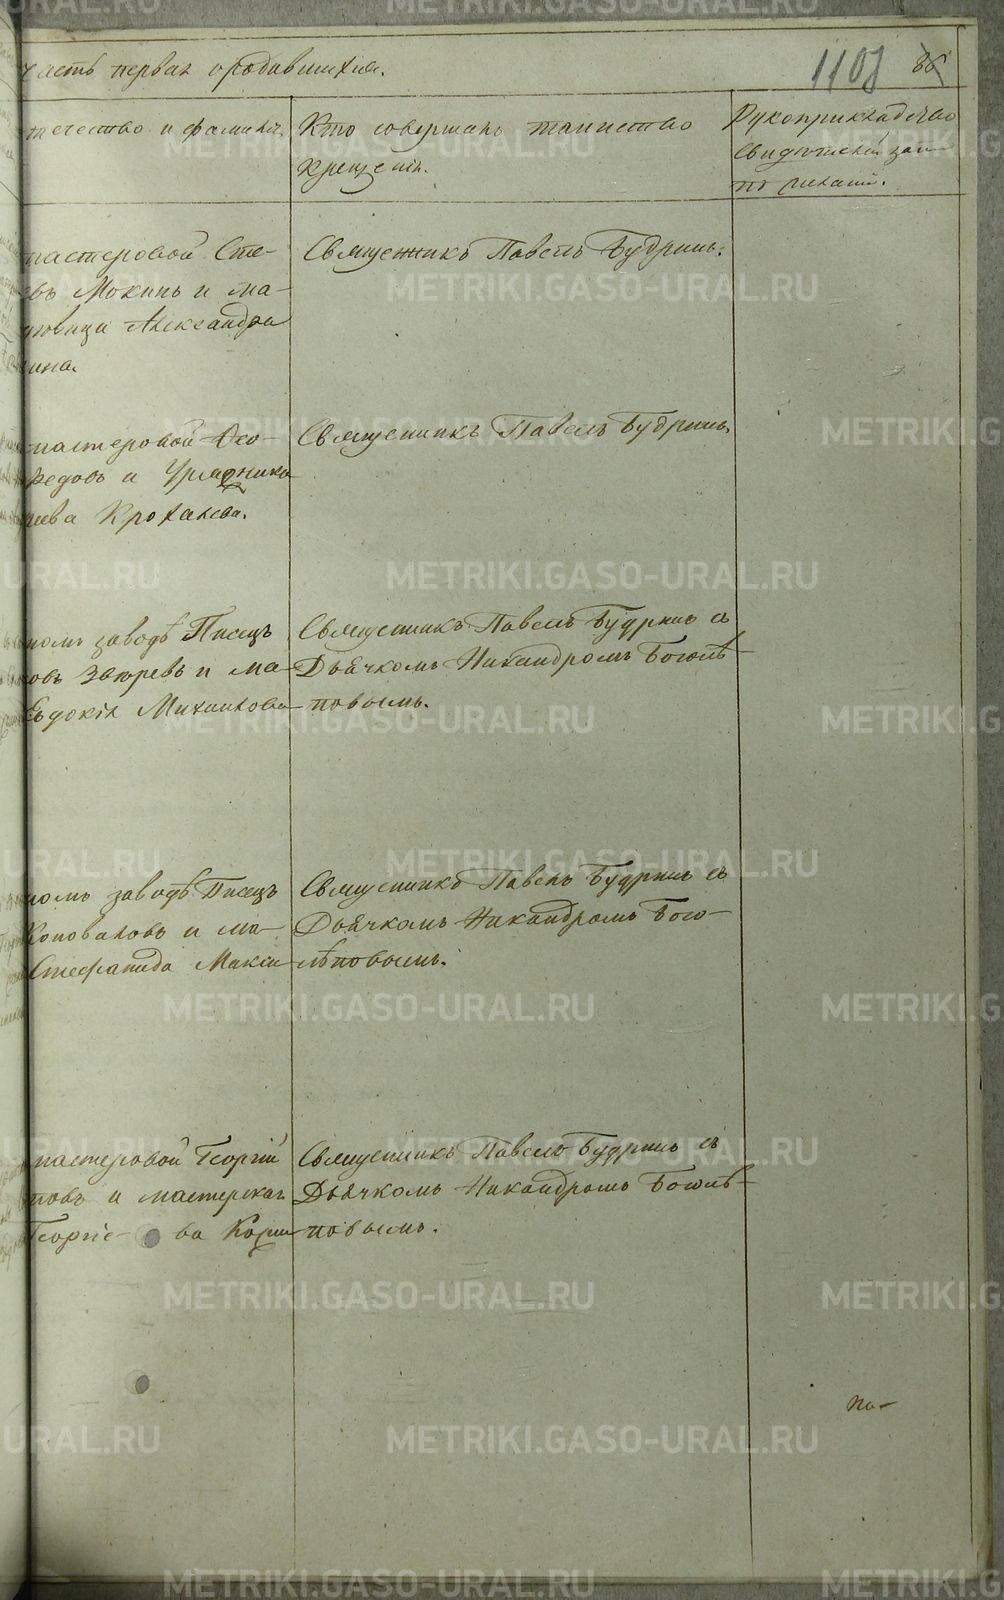 часть первая о родившихся.
1101 86
течество и фамилія.
Кто совершалъ таинство
крещенія.
Рукоприкладство
свидѣтелей запи
по желанію.
мастеровой Сте-
въ Мокинъ и ма-
Александра
ина.
Священникъ Павелъ Будринъ.
мастеровой Ѳео-
едовъ и
ева Крохалева.
Священникъ Павелъ Будринъ.
номъ заводѣ Писецъ
овъ Звѣревъ и ма-
Евдокія Михайлова
Священникъ Павелъ Будринъ съ
Дьячкомъ Никандромъ Боголѣ-
повымъ.
номъ заводѣ Писецъ
Коноваловъ и ма-
Стефанида Макси
Священникъ Павелъ Будринъ съ
Дьячкомъ Никандромъ Бого-
лѣповымъ.
мастеровой Георгій
повъ и мастерская
Георгіе- ва
Священникъ Павелъ Будринъ съ
Дьячкомъ Никандромъ Боголѣ-
повымъ.
по-
METRIKI.GASO-URAL.RU